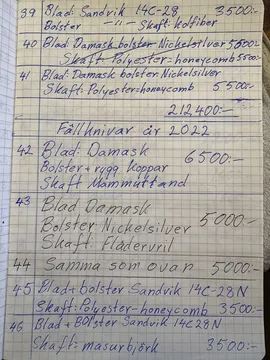 39 Blad: Sandvik 14C-28 3500:-
Bolster -"- Skaft: kolfiber
40 Blad: Damask bolster Nickelsilver 5500:-
Skaft: Polyester=honeycomb 5500:-
41 Blad: Damask bolster Nickelsilver
Skaft: Polyester=honeycomb 5500:-
212400:-
Fällknivar år 2022
42 Blad: Damask 6500:-
Bolster+rygg koppar
Skaft Mammuttand
43 Blad Damask
Bolster: Nickelsilver 5000:-
Skaft: Flädervril
44 Samma som ovan 5000:-
45 Blad+bolster Sandvik 14C-28N
Skaft: Polyester-honeycomb 3500:-
46 Blad + Bolster Sandvik 14C28N
Skaft: masurbjörk 3500:-